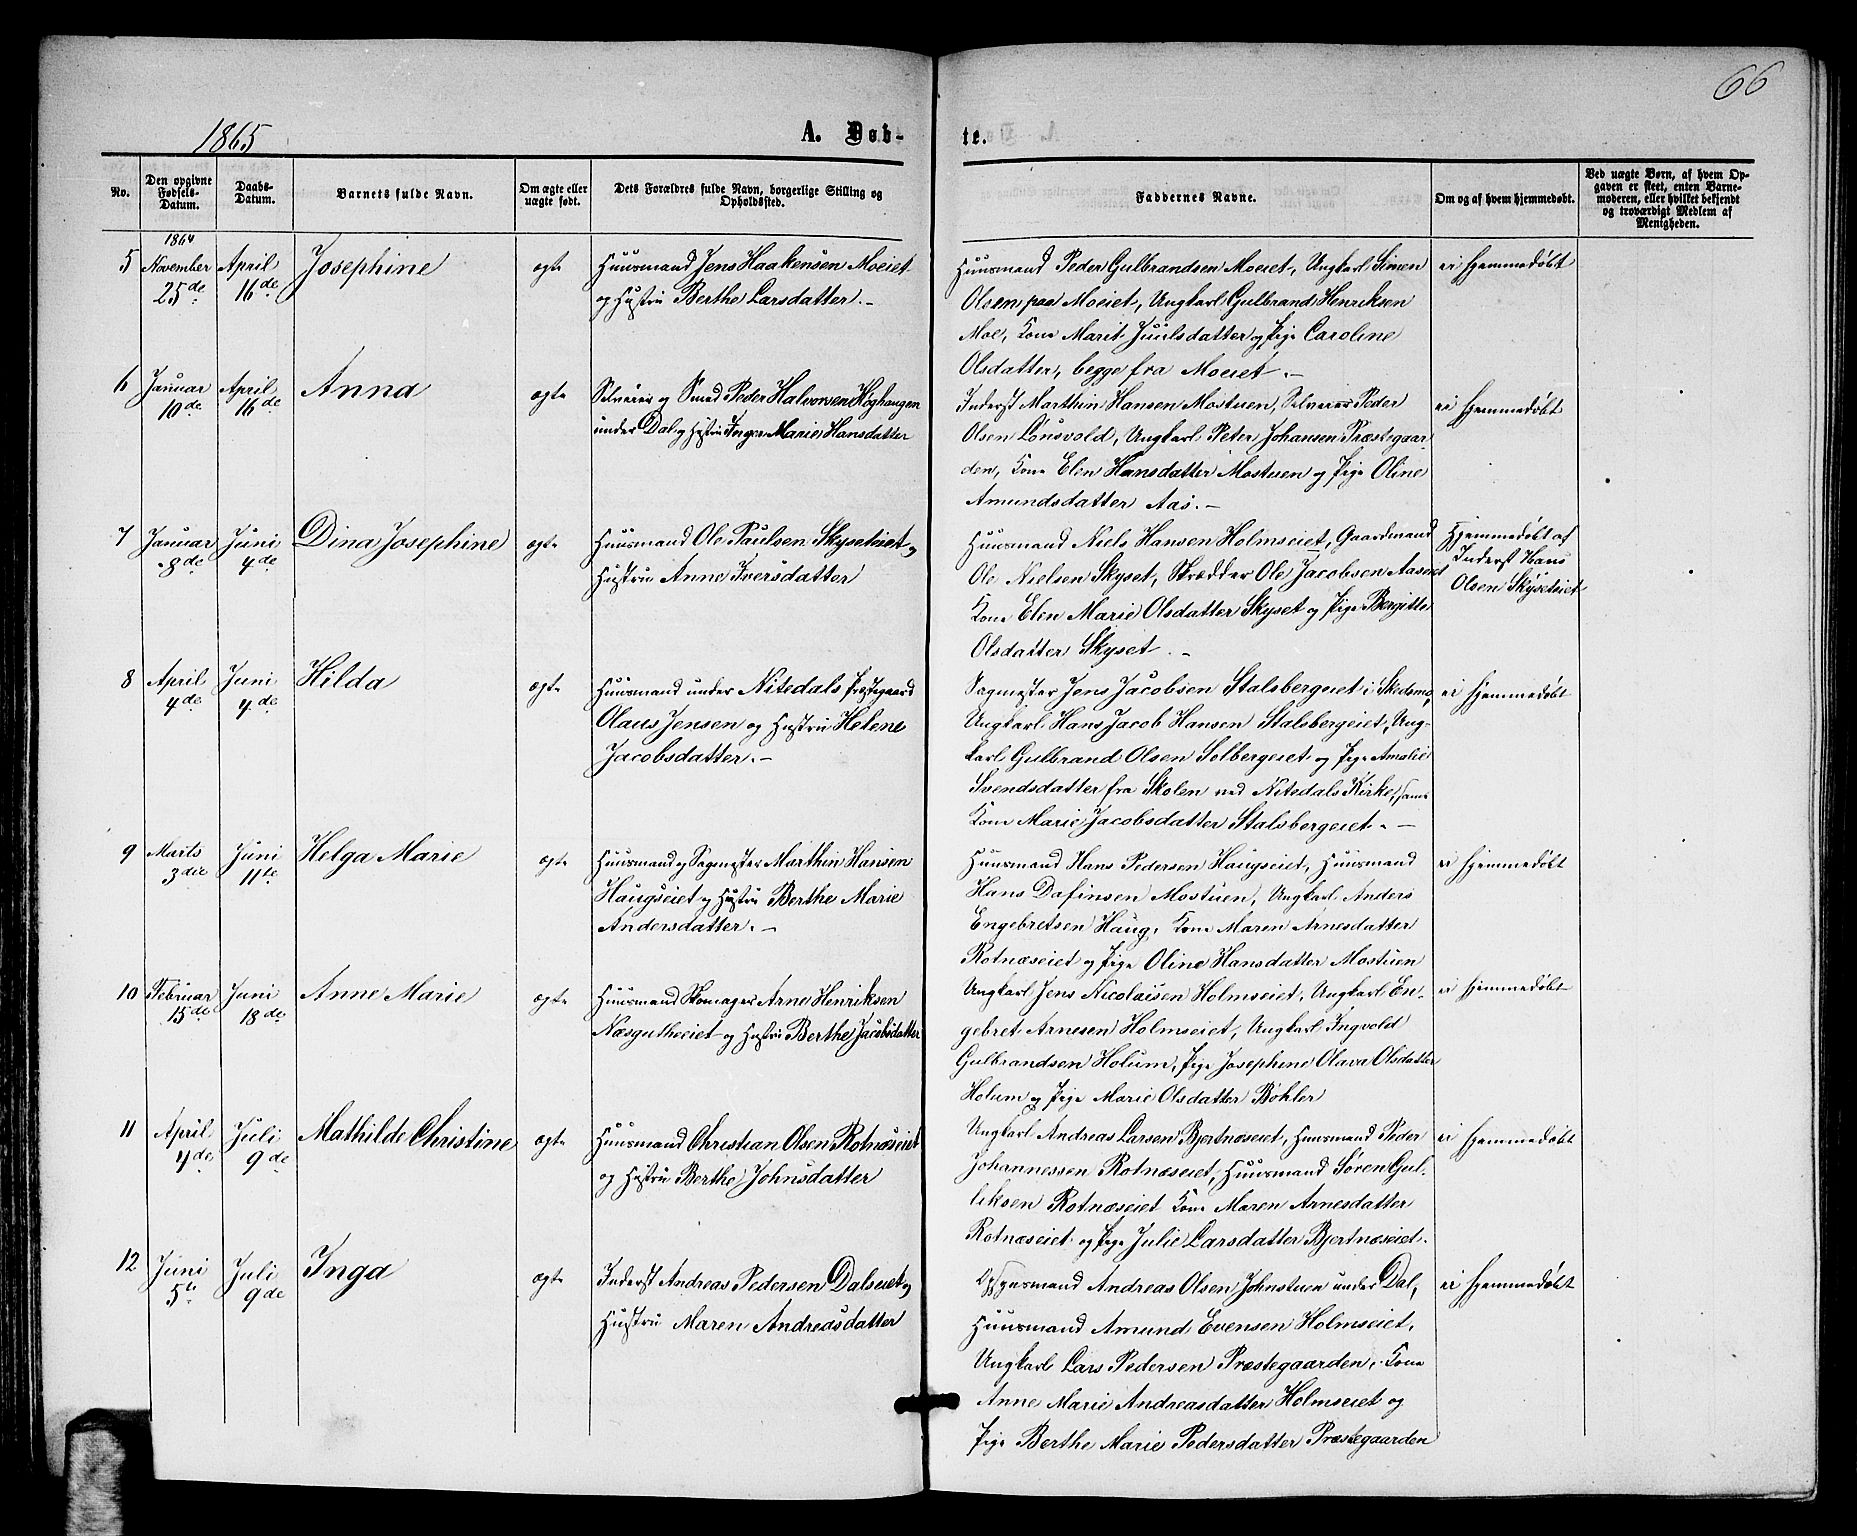 66
1865 A. Døb- te.
No. Den opgivne Fødsels-Datum. Daabs-Datum. Barnets fulde Navn. Om ægte eller uægte født. Dets Forældres fulde Navn, borgerlige Stilling og Opholdssted. Faddernes Navne. Om og af hvem hjemmedøbt. Ved uægte Børn, af hvem Opgaven er skeet, enten Barnemoderen, eller hvilket bekjendt og troværdigt Medlem af Menigheden.
1864
5 November 25de April 16de Josephine ægte Huusmand Jens Haakensen Moeiet
og Hustru Berthe Larsdatter.-
Huusmand Peder Gulbrandsen Moeiet, Ungkarl Simen
Olsen paa Moeiet, Ungkarl Gulbrand Henriksen
Moe, Kone Marit Juulsdatter og Pige Caroline
Olsdatter, begge fra Moeiet.-
ei hjemmedøbt
6 Januar 10de April 16de Anna ægte Selveier og Smed Peder Halvorsen Høghaugen
under Dal og Hustru Inger Marie Hansdatter
Inderst Marthin Hansen Mostuen, Selveier Peder
Olsen Lonsvold, Ungkarl Peter Johansen Præstegaar-
den, Kone Elen Hansdatter Mostuen og Pige Oline
Amundsdatter Aas.-
ei hjemmedøbt
7 Januar 8de Juni 4de Dina Josephine ægte Huusmand Ole Paulsen Skyseteiet og
Hustru Anne Iversdatter
Huusmand Niels Hansen Holmseiet, Gaardmand
Ole Nielsen Skyset, Skrædder Ole Jacobsen Aaseiet
Kone Elen Marie Olsdatter Skyset og Pige Bergitte
Olsdatter Skyset.-
Hjemmedøbt af
Inderst Hans
Olsen Skyseteiet
8 April 4de Juni 4de Hilda ægte Huusmand under Nitedals Præstegaard
Olaus Jensen og Hustru Helene
Jacobsdatter.-
Sagmester Jens Jacobsen Stalsbergeiet i Skedsmo,
Ungkarl Hans Jacob Hansen Stalsbergeiet, Ung-
karl Gulbrand Olsen Solbergeiet og Pige Amalie
Svendsdatter fra Skolen ved Nitedals Kirke, samt
Kone Marie Jacobsdatter Stalsbergeiet.-
ei hjemmedøbt
9 Marts 3die Juni 11te Helga Marie ægte Huusmand og Sagmester Marthin Hansen
Haugseiet og Hustru Berthe Marie
Andersdatter.-
Huusmand Hans Pedersen Haugseiet, Huusmand
Hans Dafinsen Mostuen, Ungkarl Anders
Engebretsen Haug, Kone Maren Arnesdatter
Rotnæseiet og Pige Oline Hansdatter Mostuen
ei hjemmedøbt
10 Februar 15de Juni 18de Anne Marie ægte Huusmand Skomager Arne Henriksen
Næsgutheeiet og Hustru Berthe Jacobsdatter
Ungkarl Jens Nicolaisen Holmseiet, Ungkarl En-
gebret Arnesen Holmseiet, Ungkarl Ingvold
Gulbrandsen Holum, Pige Josephine Olava Olsdatter
Holum og Pige Marie Olsdatter Bøhler
ei hjemmedøbt
11 April 4de Juli 9de Mathilde Christine ægte Huusmand Christian Olsen Rotnæseiet
og Hustru Berthe Johnsdatter
Ungkarl Andreas Larsen Bjertnæseiet, Huusmand Peder
Johannessen Rotnæseiet, Huusmand Søren Gul-
liksen Rotnæseiet Kone Maren Arnesdatter
Rotnæseiet og Pige Julie Larsdatter Bjertnæseiet.
ei hjemmedøbt
12 Juni 5te Juli 9de Inga ægte Inderst Andreas Pedersen Dalseiet og
Hustru Maren Andreasdatter
Andreas Olsen Johnstuen under Dal,
Huusmand Amund Evensen Holmseiet,
Ungkarl Lars Pedersen Præstegaarden, Kone
Anne Marie Andreasdatter Holmseiet og
Pige Berthe Marie Pedersdatter Præstegaarden
ei hjemmedøbt